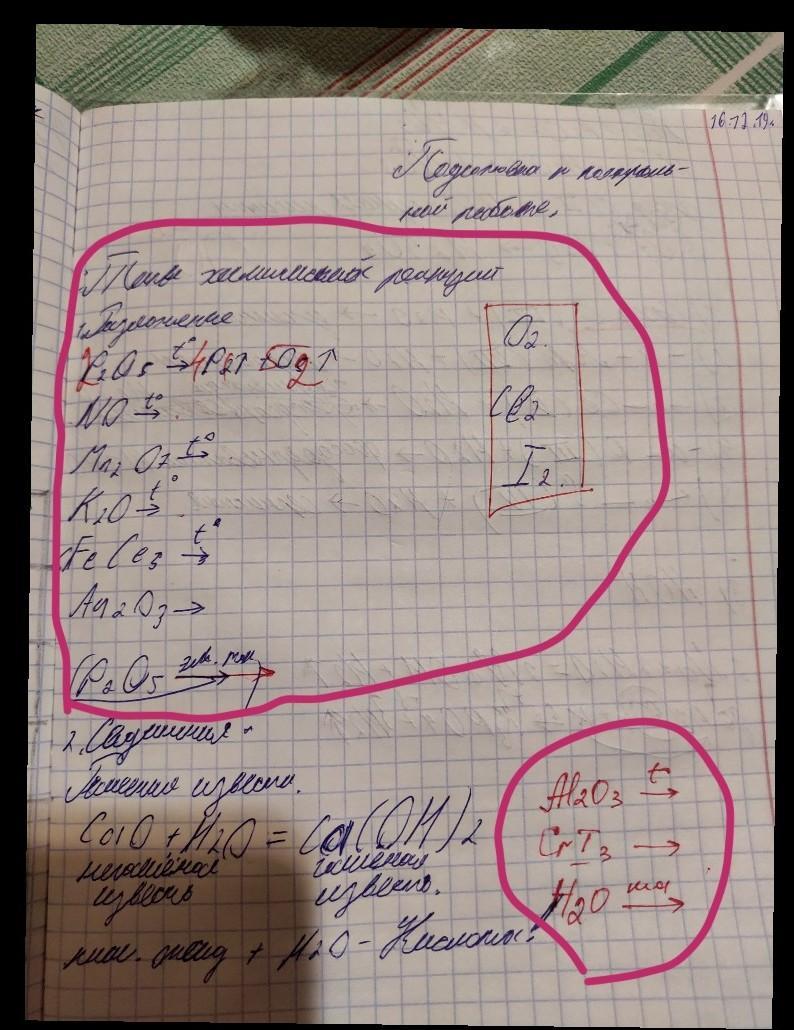 16.12.19.
Подготовка к контроль-
ной работе.
Типы химический реакций
1. Разложение
2P2O5 t°→ 4P↑ + 5O2↑
NO t°→
Mn2O7 t°→
K2O t°→
FeCl3 t°→
O2.
Cl2.
I2.
Au2O3 →
P2O5 →
2. Соединения
Гашения извести.
CaO + H2O = Ca(OH)2
негашёная гашеная
известь известь.
кис. оксид + H2O - Кислота!
Al2O3 t→
CrI3 →
H2O →